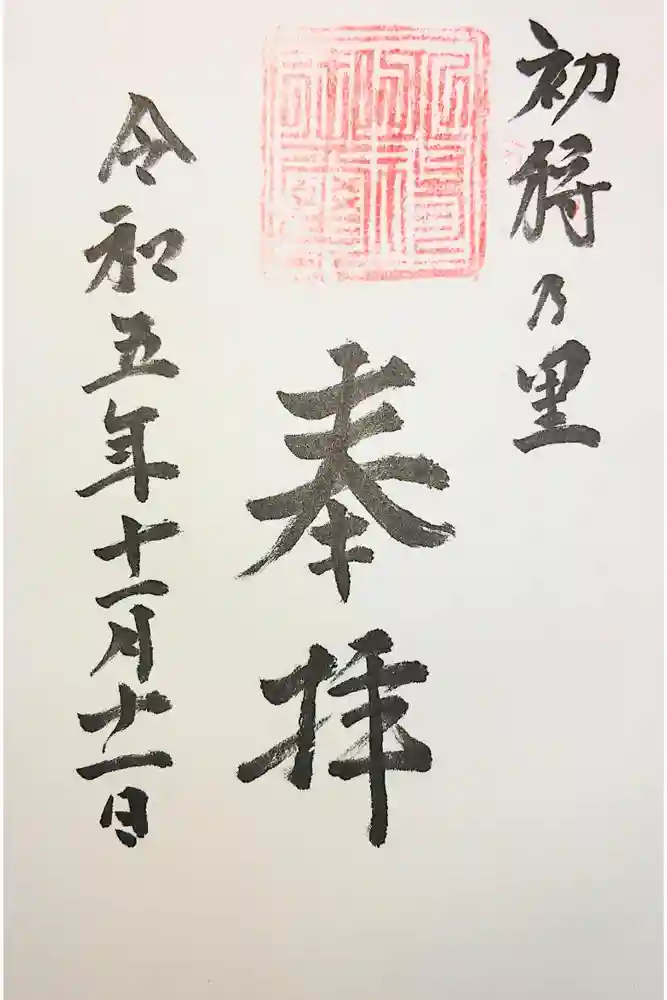 初狩乃里
奉拝
令和五年十一月十二日